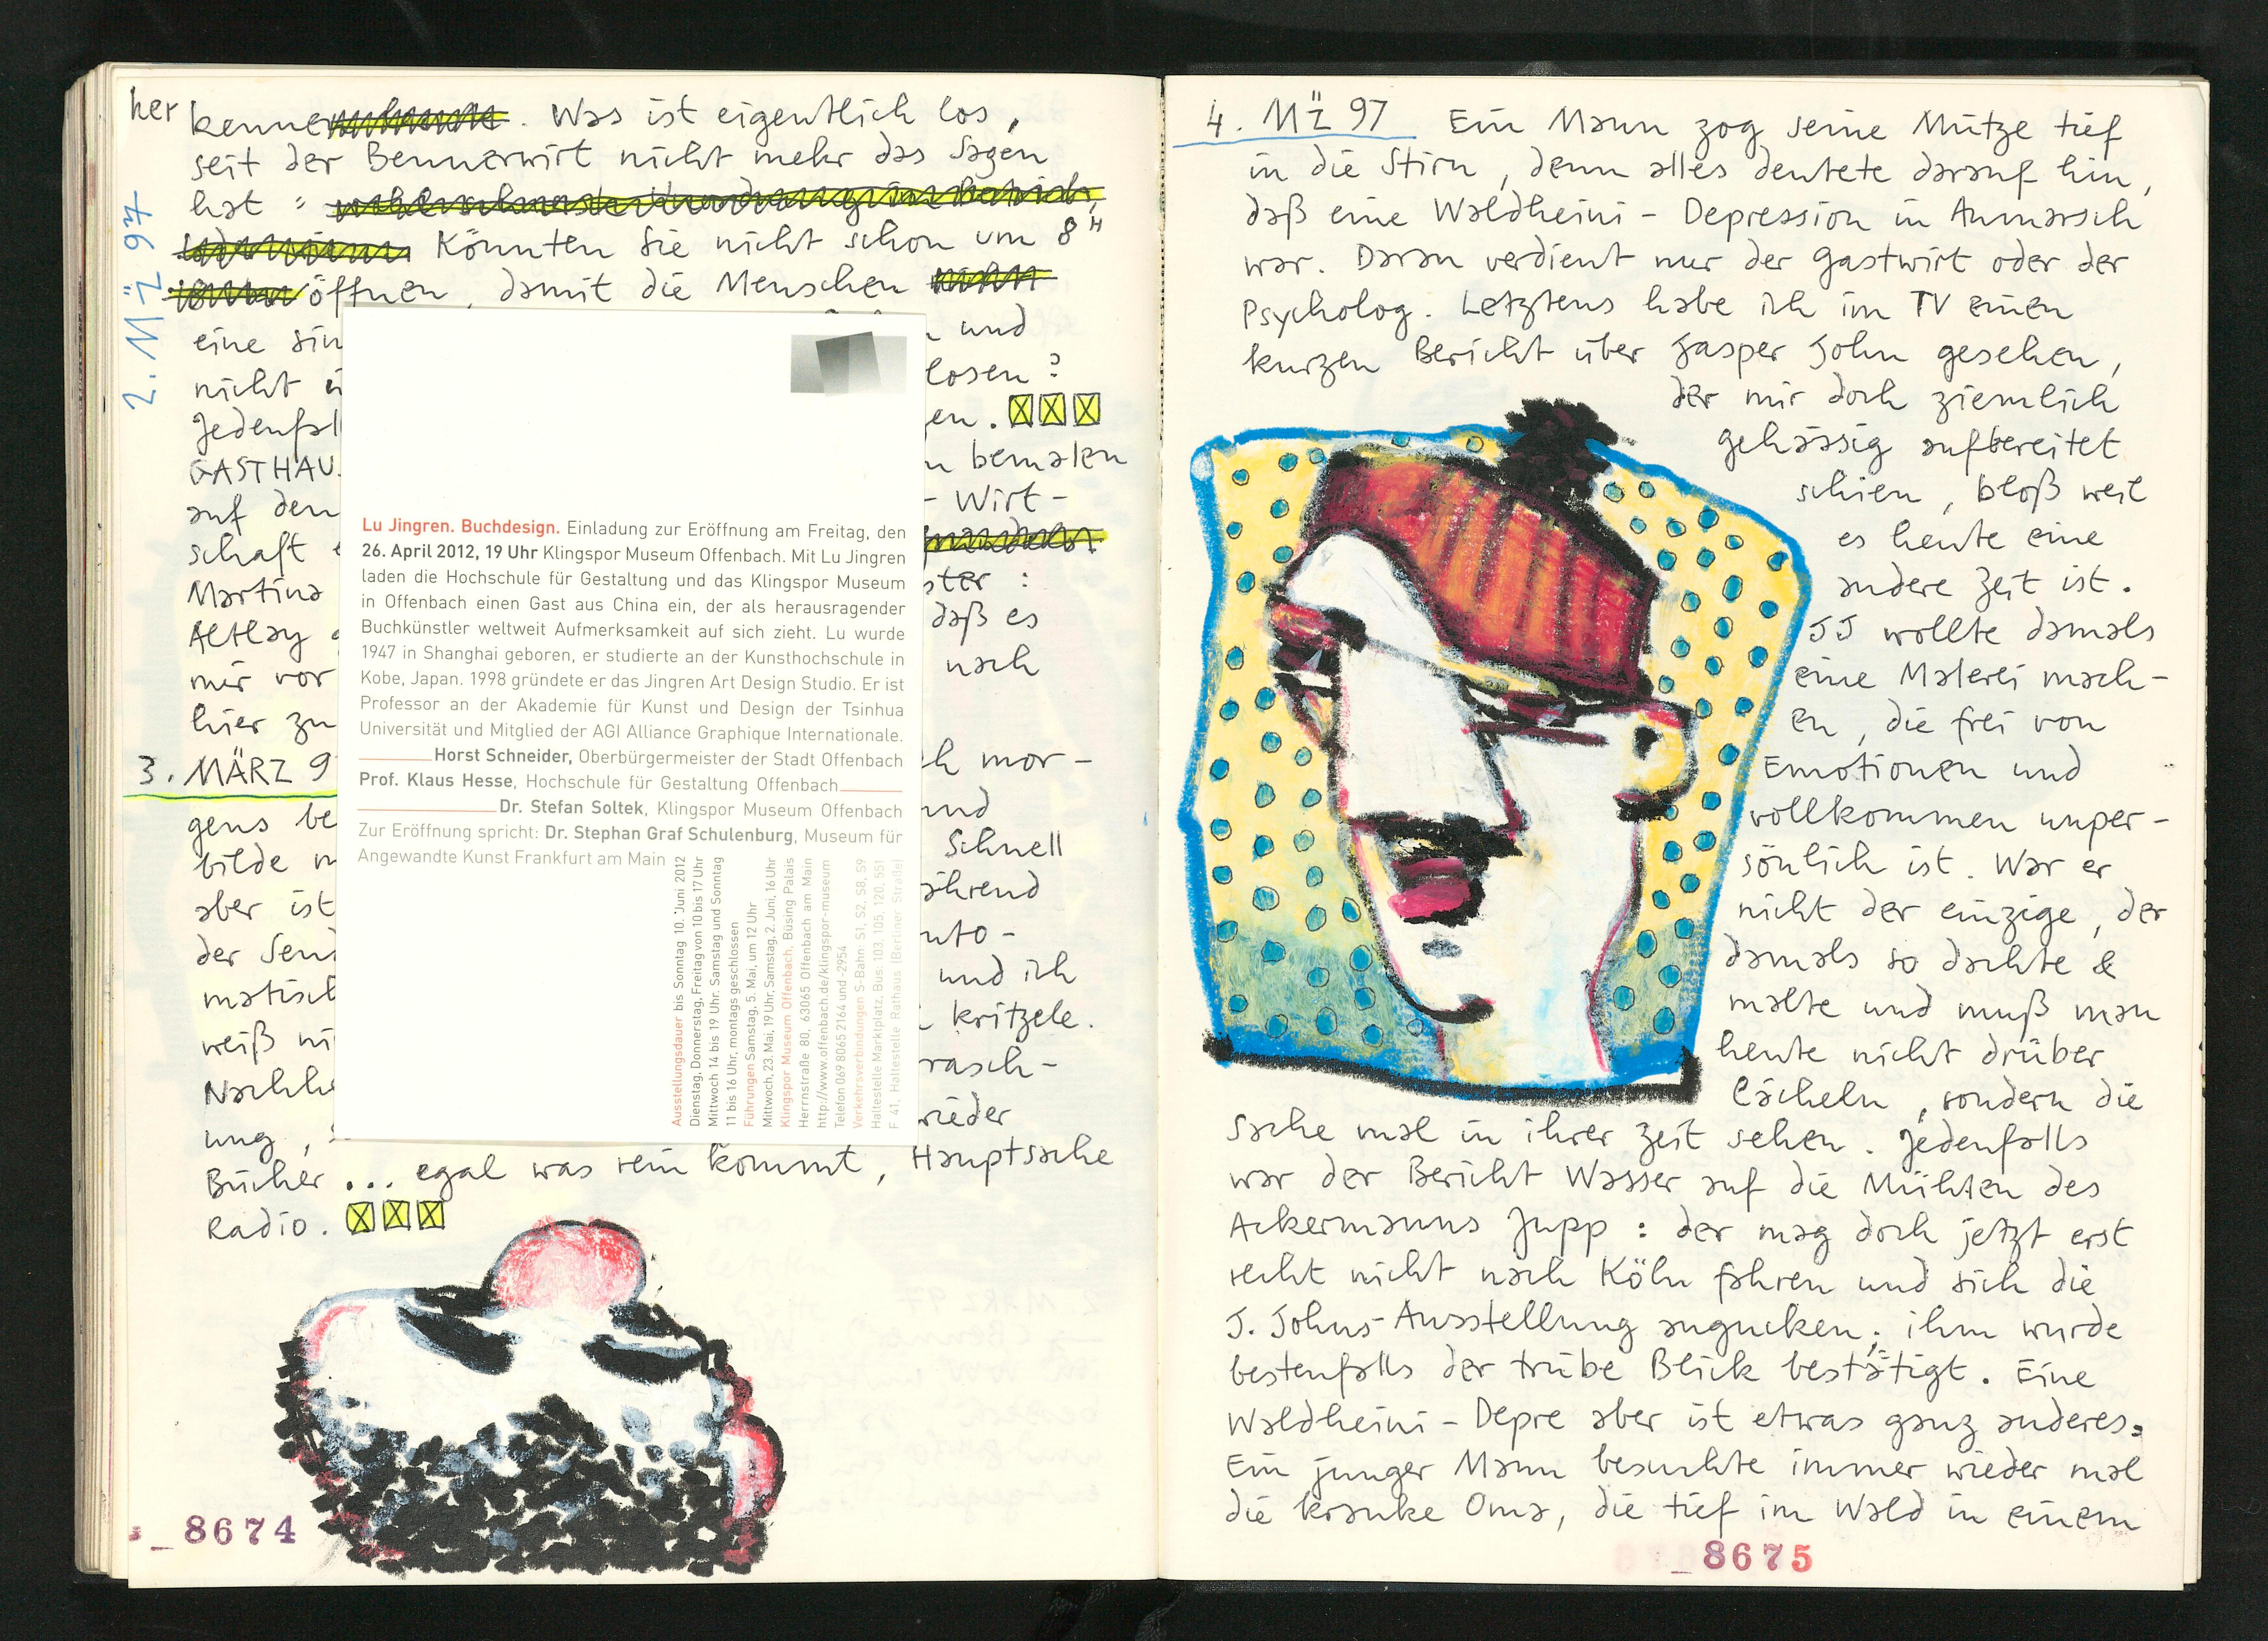 her kenne. Was ist eigentlich los,
seit der Bennerwirt nicht mehr das Sagen
hat:
Könnten Sie nicht schon um 8"
öffnen, damit die Menschen
eine sin
und
nicht
losen?
Jedenfal
en. XXX
GASTHAU
bemalen
auf den
- Wirt-
schaft
Martina
ster:
Altlay
daß es
mir vor
nach
hier zu
2. MÄZ 97
3. MÄRZ 9
mor-
gens be
und
bilde m
Schnell
aber ist
ährend
der Sen
uto-
matisch
und ich
weiß ni
kritzele.
Nachh
rasch-
ung,
wieder
Bücher... egal was rein kommt, Hauptsache
Radio. XXX
_8674
Lu Jingren. Buchdesign. Einladung zur Eröffnung am Freitag, den
26. April 2012, 19 Uhr Klingspor Museum Offenbach. Mit Lu Jingren
laden die Hochschule für Gestaltung und das Klingspor Museum
in Offenbach einen Gast aus China ein, der als herausragender
Buchkünstler weltweit Aufmerksamkeit auf sich zieht. Lu wurde
1947 in Shanghai geboren, er studierte an der Kunsthochschule in
Kobe, Japan. 1998 gründete er das Jingren Art Design Studio. Er ist
Professor an der Akademie für Kunst und Design der Tsinhua
Universität und Mitglied der AGI Alliance Graphique Internationale.
Horst Schneider, Oberbürgermeister der Stadt Offenbach
Prof. Klaus Hesse, Hochschule für Gestaltung Offenbach
Dr. Stefan Soltek, Klingspor Museum Offenbach
Zur Eröffnung spricht: Dr. Stephan Graf Schulenburg, Museum für
Angewandte Kunst Frankfurt am Main
Ausstellungsdauer bis Sonntag 10. Juni 2012
Dienstag, Donnerstag, Freitag von 10 bis 17 Uhr
Mittwoch 14 bis 19 Uhr. Samstag und Sonntag
11 bis 16 Uhr, montags geschlossen
Führungen Samstag, 5. Mai, um 12 Uhr
Mittwoch, 23. Mai, 19 Uhr, Samstag, 2. Juni, 16 Uhr
Klingspor Museum Offenbach, Büsing Palais
Herrnstraße 80, 63065 Offenbach am Main
http://www.offenbach.de/klingspor-museum
Telefon 069 8065 2164 und -2954
Verkehrsverbindungen S-Bahn: S1, S2, S8, S9
Haltestelle Marktplatz, Bus: 103, 105, 120, 551
F 41, Haltestelle Rathaus (Berliner Straße)
4. MÄZ 97 Ein Mann zog seine Mütze tief
in die Stirn, denn alles deutete darauf hin,
daß eine Waldheini-Depression in Anmarsch
war. Daran verdient nur der Gastwirt oder der
Psycholog. Letztens habe ich im TV einen
kurzen Bericht über Jasper John gesehen,
der mir doch ziemlich
gehässig aufbereitet
schien, bloß weil
es heute eine
andere Zeit ist.
JJ wollte damals
eine Malerei mach-
en, die frei von
Emotionen und
vollkommen unper-
sönlich ist. War er
nicht der einzige, der
damals so dachte &
malte und muß man
heute nicht drüber
lächeln, sondern die
Sache mal in ihrer Zeit sehen. Jedenfalls
war der Bericht Wasser auf die Mühlen des
Ackermanns Jupp: der mag doch jetzt erst
recht nicht nach Köln fahren und sich die
J. Johns-Ausstellung angucken; ihm wurde
bestenfalls der trübe Blick bestätigt. Eine
Waldheini-Depre aber ist etwas ganz anderes:
Ein junger Mann besuchte immer wieder mal
die kranke Oma, die tief im Wald in einem
_8675